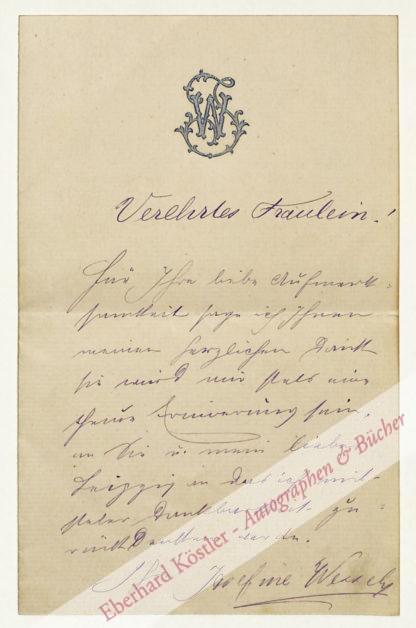 JW
Verehrtes Fräulein!
Für Ihre liebe Aufmerk-
samkeit sage ich Ihnen
meinen herzlichen Dank
sie wird mir stets eine
theure Erinnerung sein,
an Sie u. mein liebes
Leipzig an das ich mit
steter Dankbarkeit zu-
rückdenken werde.
Ihre Josefine Wessely
Eberhard Köstler - Autographen & Bücher